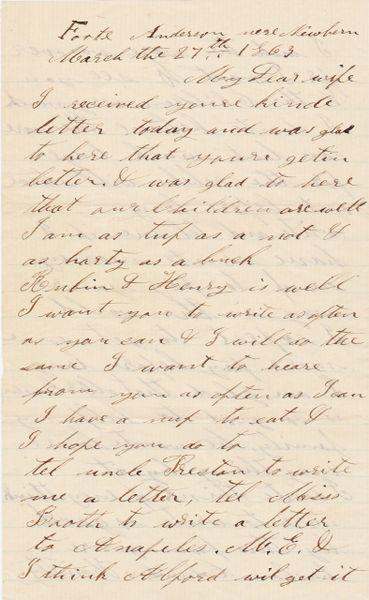 Forte Anderson nere Newbern
March the 27th 1863
My Dear wife
I received youre kinde
letter today and was glad
to here that youre getin
better. & was glad to here
that our Children are well
I am as tuf as a not &
as harty as a buck
Rubin & Henry is well
I want you to write as often
as you can & I will do the
same I want to heare
from you as often as I can
I have a nuf to eat &
I hope you do to
tel uncle Preston to write
me a letter, tel Miss
to write a letter
to Anapeles. M. E. &
I think Alford wil get it